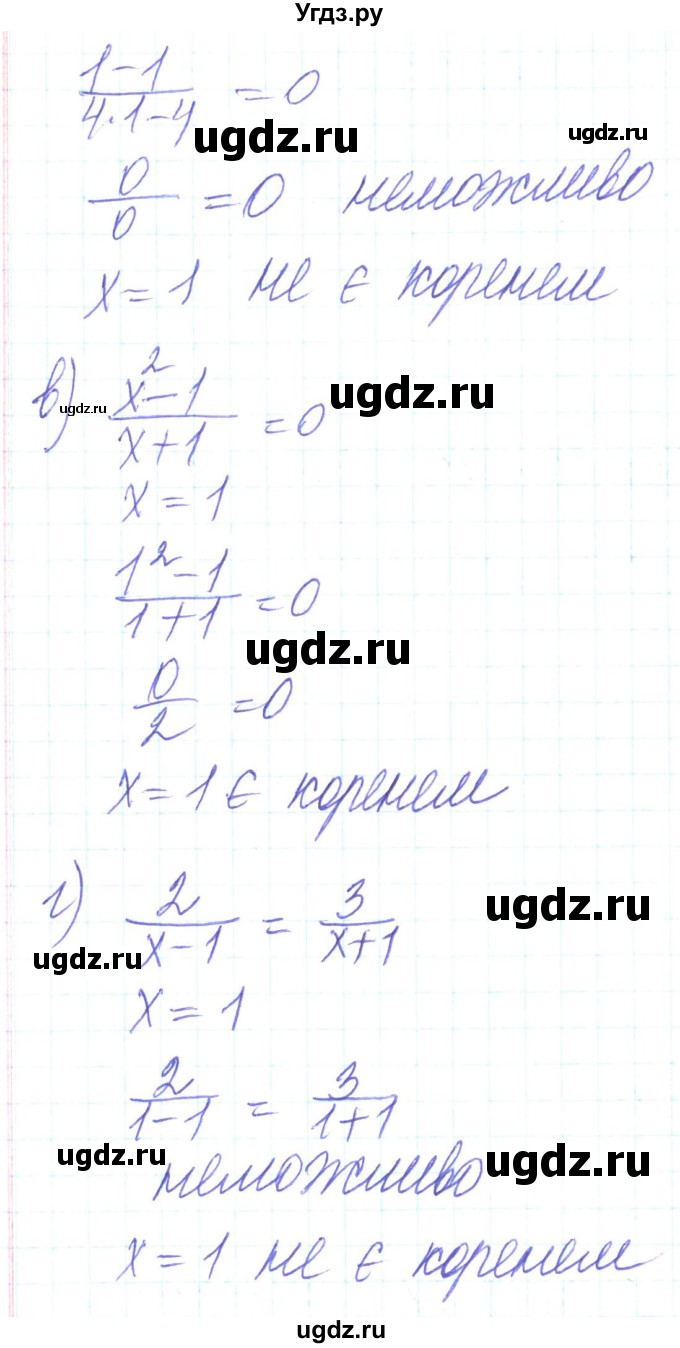 Угдз.ру
(1-1)/(4·1-4) = 0
ugdz.ru ugdz.ru
0/0 = 0 неможливо
x = 1 не є коренем
в) (x²-1)/(x+1) = 0
ugdz.ru ugdz.ru
x = 1
(1²-1)/(1+1) = 0
ugdz.ru
0/2 = 0
x = 1 є коренем
г) 2/(x-1) = 3/(x+1)
ugdz.ru
ugdz.ru
x = 1
2/(1-1) = 3/(1+1)
ugdz.ru ugdz.ru
неможливо
x = 1 не є коренем
ugdz.ru